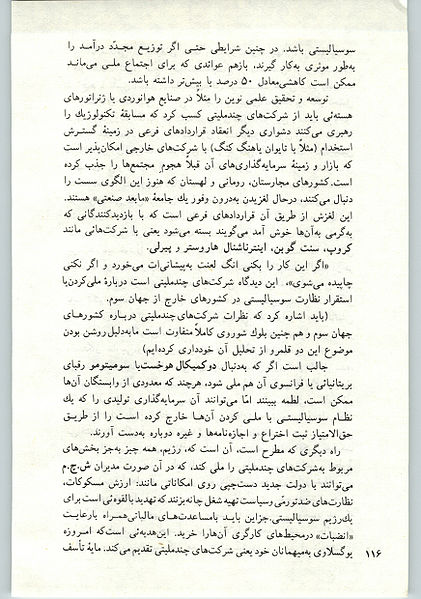 سوسیالیستی باشد. در چنین شرایطی حتی اگر توزیع مجدّد درآمد را
به‌طور موثری به‌کار گیرند، بازهم عوائدی که برای اجتماع ملی می‌ماند
ممکن است کاهشی‌معادل ۵۰ درصد یا بیش‌تر داشته باشد.
توسعه و تحقیق علمی نوین را مثلاً در صنایع هوانوردی یا ژنراتورهای
هسته‌ئی باید از شرکت‌های چندملیتی کسب کرد که مسابقهٔ تکنولوژیك را
رهبری می‌کنند دشواری دیگر انعقاد قراردادهای فرعی در زمینهٔ گسترش
استخدام (مثلاً با تایوان یاهنگ کنگ) با شرکت‌های خارجی امکان‌پذیر است
که بازار و زمینهٔ سرمایه‌گذاری‌های آن قبلاً هجوم مجتمع‌ها را جذب کرده
است.کشورهای مجارستان، رومانی و لهستان که هنوز این الگوی سست را
دنبال می‌کنند، درحال لغزیدن به‌درون وفور یك جامعهٔ «مابعد صنعتی» هستند.
این لغزش از طریق آن قراردادهای فرعی است که با بازدیدکنندگانی که
به‌گرمی به‌آن‌ها خوش آمد می‌گویند بسته می‌شود یعنی با شرکت‌هائی مانند
کروپ، سنت گوبن، اینترناشنال هاروستر و پیرلی.
«اگر این کار را بکنی انگ لعنت به‌پیشانی‌ات می‌خورد و اگر نکنی
چاپیده می‌شوی»، این دیدگاه شرکت‌های چندملیتی است دربارهٔ ملی‌کردن‌یا
استقرار نظارت سوسیالیستی در کشورهای خارج از جهان سوم.
(باید اشاره کرد که نظرات شرکت‌های چندملیتی درباره کشورهای
جهان سوم و هم چنین بلوك شوروی کاملاً متفاوت است مابه‌دلیل روشن بودن
موضوع این دو قلمرو از تحلیل آن خودداری کرده‌ایم)
جالب است اگر که به‌دنبال دوکمیکال هوخست‌یا سومیتومو رقبای
بریتانیائی یا فرانسوی آن هم ملی شود، هرچند که معدودی از وابستگان آن‌ها
ممکن است، لطمه ببینند امّا می‌توانند آن سرمایه‌گذاری تولیدی را که یك
نظام سوسیالیستی با ملی کردن آن‌ها خارج کرده است را از طریق
حق‌الامتیاز ثبت اختراع و اجازه‌نامه‌ها و غیره دوباره به‌دست آورند.
راه دیگری که مطرح است، آن است که، رژیم، همه چیز به‌جز بخش‌های
مربوط به‌شرکت‌های چندملیتی را ملی کند، که در آن صورت مدیران ش.چ.م
می‌توانند با دولت جدید دست‌چپی روی امکاناتی مانند: ارزش مسکوکات،
نظارت‌های ضدتورمّی وسیاست تهیه شغل چانه‌بزنند که تهدید بالقوه‌ئی است برای
یك‌رژیم سوسیالیستی.جزاین باید بامساعدت‌های مالیاتی‌همراه بارعایت
«انضبات» درمحیط‌های کارگری آن‌هارا خرید. این‌هدیه‌ئی است‌که امروزه
یوگسلاوی به‌میهمانان خود یعنی شرکت‌های چندملیتی تقدیم می‌کند. مایهٔ تأسف
۱۱۶